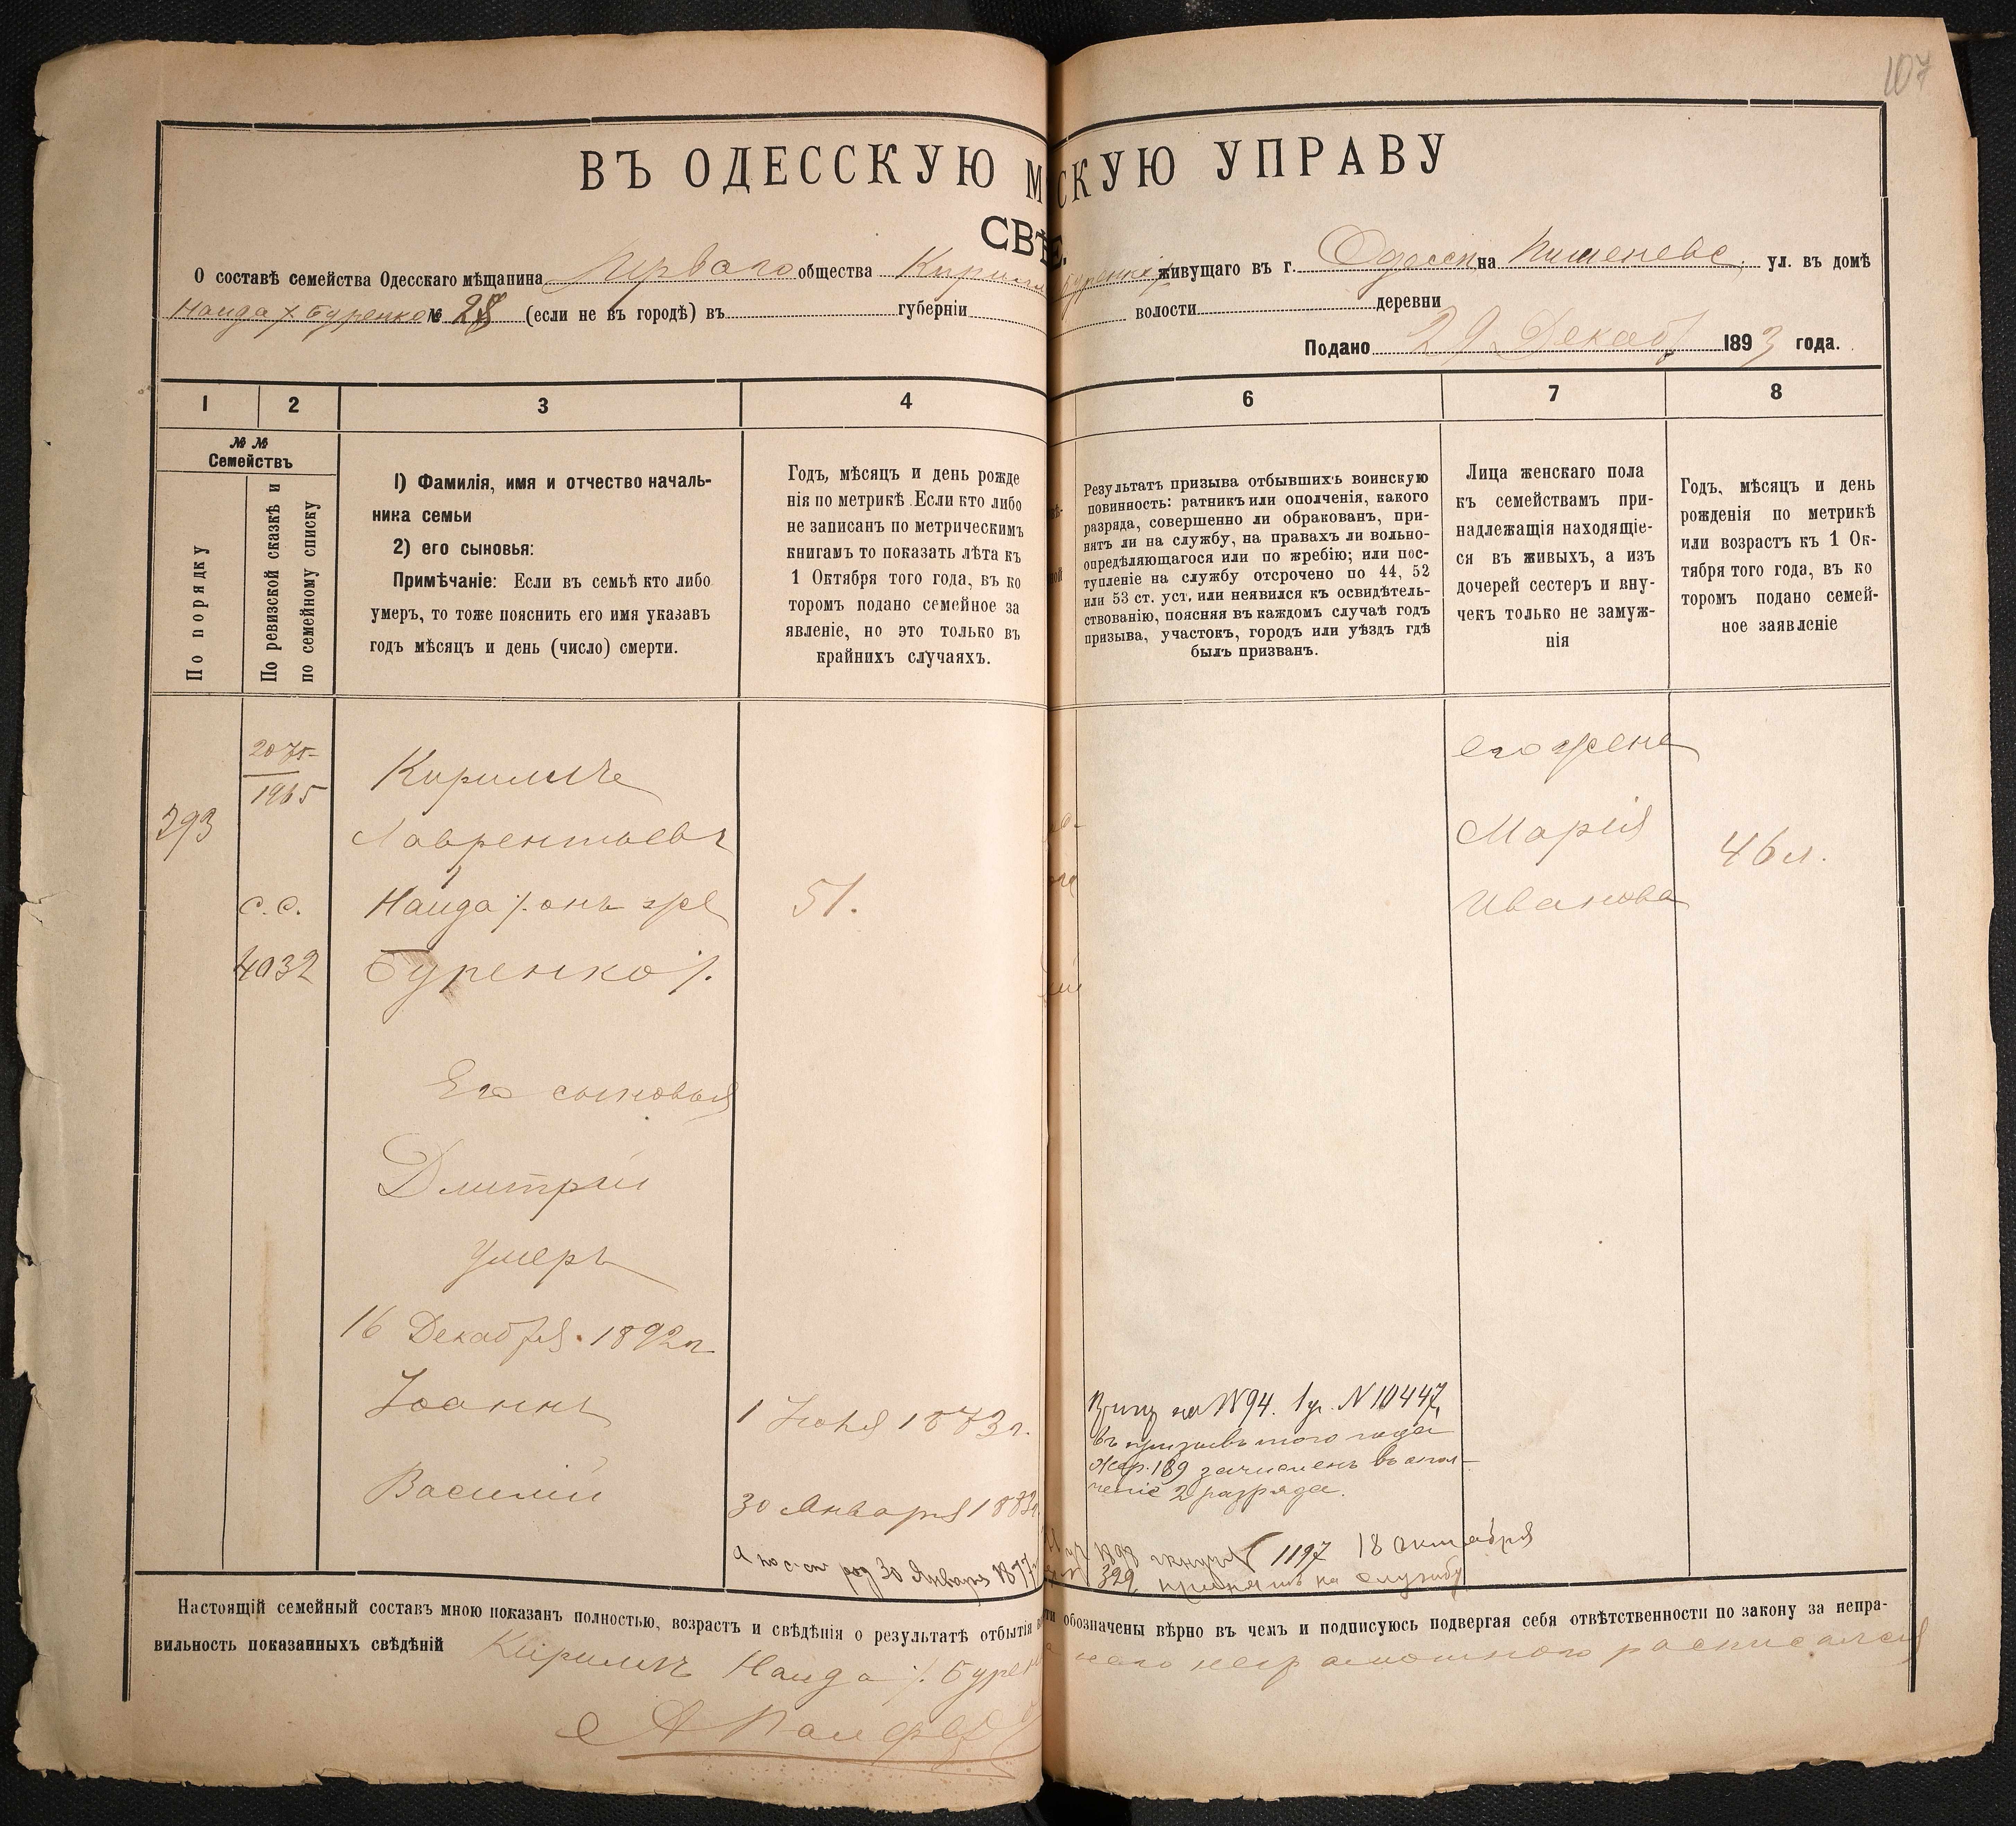 107
ВЪ ОДЕССКУЮ М СКУЮ УПРАВУ
СВѢ
О составѣ семейства Одесскаго мѣщанина Перваго общества Кирил Буренко живущаго въ г. Одессѣ на ул. въ домѣ
Наида ./. Буренко № 28 (если не въ городѣ) въ губерніи волости деревни
Подано 29 Декаб 1893 года.
1 2 3 4 6 7 8
№ №
Семействъ
По порядку
По ревизской сказкѣ и
по семейному списку
1) Фамилія, имя и отчество началь-
ника семьи
2) его сыновья:
Примѣчаніе: Если въ семьѣ кто либо
умеръ, то тоже пояснить его имя указавъ
годъ мѣсяцъ и день (число) смерти.
Годъ, мѣсяцъ и день рожде
нія по метрикѣ. Если кто либо
не записанъ по метрическимъ
книгамъ то показать лѣта къ
1 Октября того года, въ ко
торомъ подано семейное за
явленіе, но это только въ
крайнихъ случаяхъ.
Результатъ призыва отбывшихъ воинскую
повинность: ратникъ или ополченія, какого
разряда, совершенно ли обракованъ, при-
нятъ ли на службу, на правахъ ли вольно-
опредѣляющагося или по жребію; или пос-
тупленіе на службу отсрочено по 44, 52
или 53 ст. уст. или неявился къ освидѣтель-
ствованію, поясняя въ каждомъ случаѣ годъ
призыва, участокъ, городъ или уѣздъ гдѣ
былъ призванъ.
Лица женскаго пола
къ семействамъ при-
надлежащія находящіе-
ся въ живыхъ, а изъ
дочерей сестеръ и вну-
чекъ только не замуж-
нія
Годъ, мѣсяцъ и день
рожденія по метрикѣ
или возрастъ къ 1 Ок-
тября того года, въ ко
торомъ подано семей-
ное заявленіе
293
2075
1965
с. с.
4032
Кириллъ
Лаврентьевъ
Наида ./. онъ же
Буренко ./.
51.
его жена
Марія
Иванова
46 л.
Его сыновья
Дмитрій
умеръ
16 Декабря 1892 г.
Іоаннъ
1 Іюня 1873 г.
на 1894. 1 уч. N 10447,
въ призывъ того года
жер. 189 зачисленъ въ опол-
ченіе 2 разряда.
Василій
30 Января 1883 г.
а по с-ст род 30 Января 1877
1898 1197 18 октября
329 принятъ на службу
Настоящій семейный составъ мною показанъ полностью, возрастъ и свѣдѣнія о результатѣ отбытія обозначены вѣрно въ чемъ и подписуюсь подвергая себя отвѣтственности по закону за непра-
вильность показанныхъ свѣдѣній Кириллъ Наида ./. Бурен него неграмотного расписался